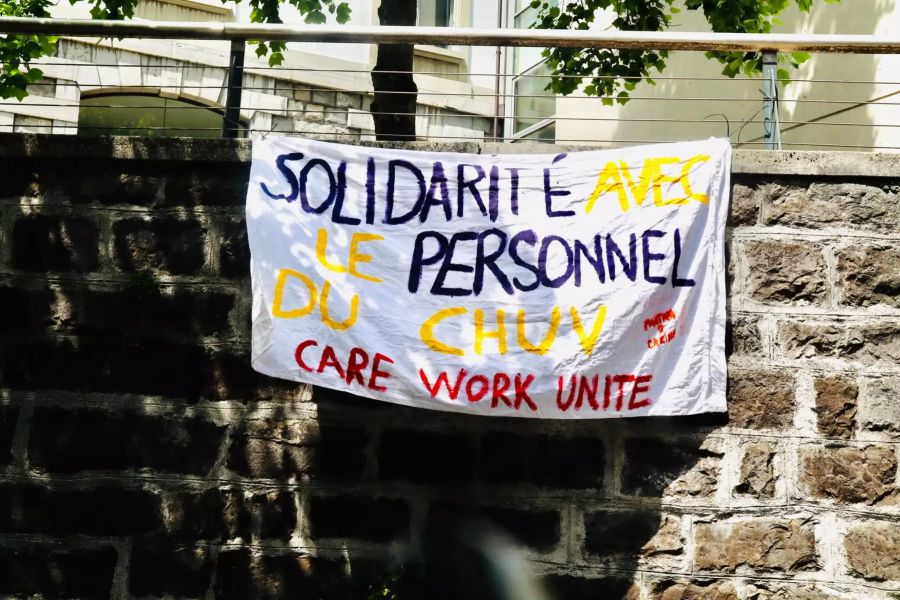 SOLIDARITÉ AVEC
LE PERSONNEL
DU CHUV
CARE WORK UNITE